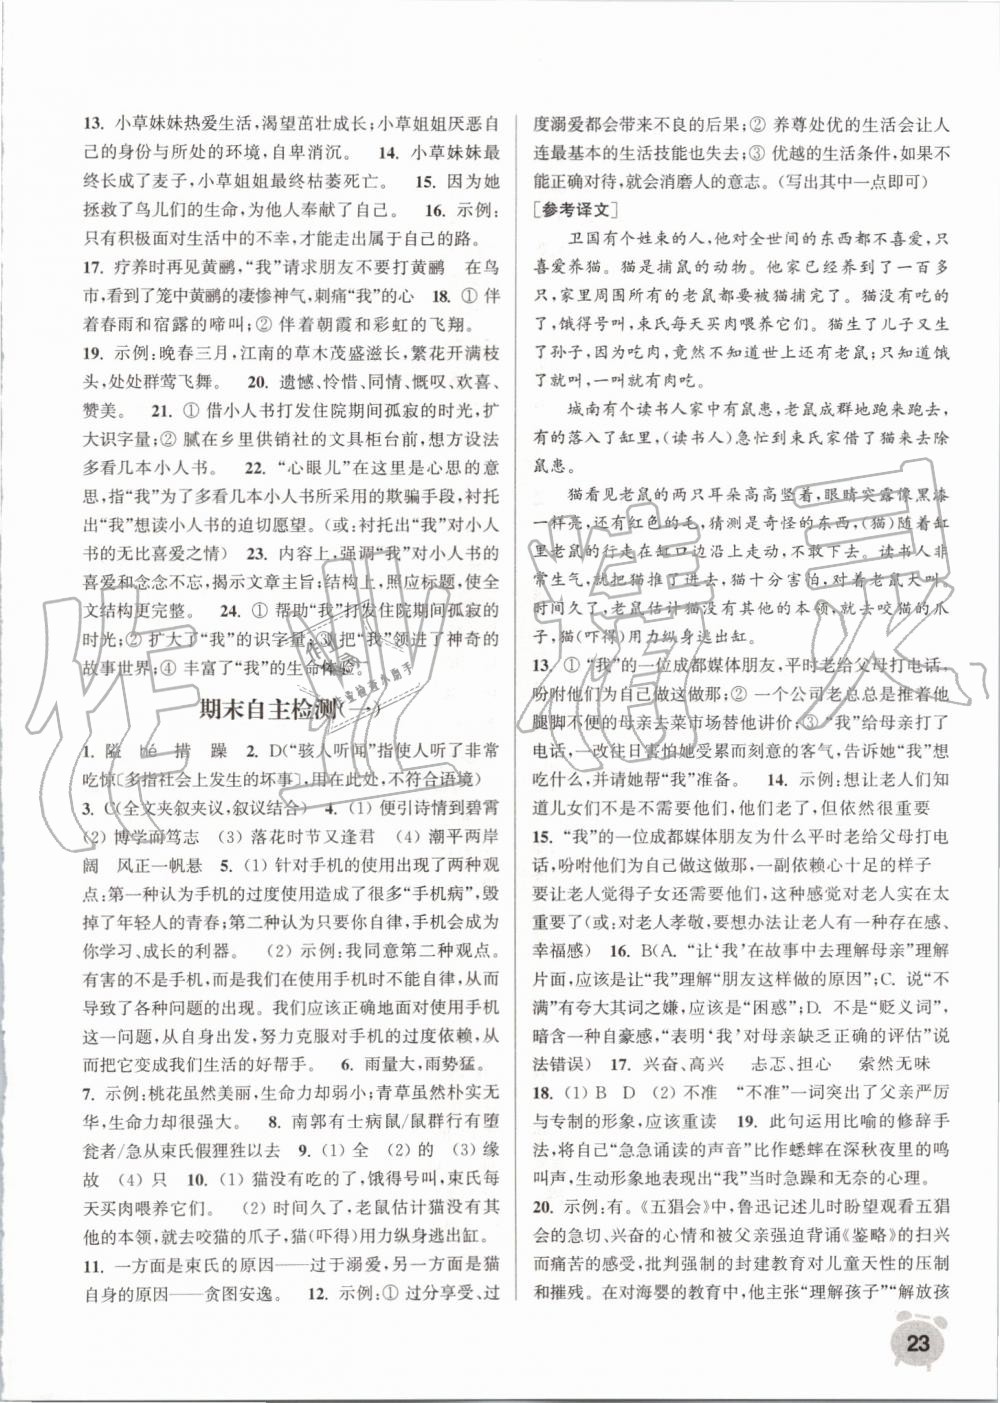 13. 小草妹妹热爱生活,渴望茁壮成长;小草姐姐厌恶自
己的身份与所处的环境,自卑消沉。 14. 小草妹妹最
终长成了麦子,小草姐姐最终枯萎死亡。 15. 因为她
拯救了鸟儿们的生命,为他人奉献了自己。 16. 示例:
只有积极面对生活中的不幸,才能走出属于自己的路。
17. 疗养时再见黄鹂,“我”请求朋友不要打黄鹂 在鸟
市,看到了笼中黄鹂的凄惨神气,刺痛“我”的心 18. ① 伴
着春雨和宿露的啼叫;② 伴着朝霞和彩虹的飞翔。
19. 示例:晚春三月,江南的草木茂盛滋长,繁花开满枝
头,处处群莺飞舞。 20. 遗憾、怜惜、同情、慨叹、欢喜、
赞美。 21. ① 借小人书打发住院期间孤寂的时光,扩
大识字量;② 腻在乡里供销社的文具柜台前,想方设法
多看几本小人书。 22. “心眼儿”在这里是心思的意
思,指“我”为了多看几本小人书所采用的欺骗手段,衬托
出“我”想读小人书的迫切愿望。(或:衬托出“我”对小人
书的无比喜爱之情) 23. 内容上,强调“我”对小人书的
喜爱和念念不忘,揭示文章主旨;结构上,照应标题,使全
文结构更完整。 24. ① 帮助“我”打发住院期间孤寂的
时光;② 扩大了“我”的识字量;③ 把“我”领进了神奇的
故事世界;④ 丰富了“我”的生命体验。
期末自主检测(一)
1. 隘 措 躁 2. D(“骇人听闻”指使人听了非常
吃惊〔多指社会上发生的坏事〕,用在此处,不符合语境)
3. C(全文夹叙夹议,叙议结合) 4. (1) 便引诗情到碧霄
(2) 博学而笃志 (3) 落花时节又逢君 (4) 潮平两岸
阔 风正一帆悬 5. (1) 针对手机的使用出现了两种观
点:第一种认为手机的过度使用造成了很多“手机病”,毁
掉了年轻人的青春;第二种认为只要你自律,手机会成为
你学习、成长的利器。 (2) 示例:我同意第二种观点。
有害的不是手机,而是在使用手机时不能自律,从而
导致了各种问题的出现。我们应该正确地面对使用手机
这一问题,从自身出发,努力克服对手机的过度依赖,从
而把它变成我们生活的好帮手。 6. 雨量大,雨势猛。
7. 示例:桃花虽然美丽,生命力却弱小;青草虽然朴实无
华,生命力却很强大。 8. 南郭有士病鼠/鼠群行有堕
瓮者/急从束氏假狸狌以去 9. (1) 全 (2) 的 (3) 缘
故 (4) 只 10. (1) 猫没有吃的了,饿得号叫,束氏每
天买肉喂养它们。 (2) 时间久了,老鼠估计猫没有其他
的本领,就去咬猫的爪子,猫(吓得)用力纵身逃出缸。
11. 一方面是束氏的原因——过于溺爱,另一方面是猫
自身的原因——贪图安逸。 12. 示例:① 过分享受、过
度溺爱都会带来不良的后果;② 养尊处优的生活会让人
连最基本的生活技能也失去;③ 优越的生活条件,如果不
能正确对待,就会消磨人的意志。(写出其中一点即可)
[参考译文]
卫国有个姓束的人,他对全世间的东西都不喜爱,只
喜爱养猫。猫是捕鼠的动物。他家已经养到了一百多
只,家里周围所有的老鼠都要被猫捕完了。猫没有吃的
了,饿得号叫,束氏每天买肉喂养它们。猫生了儿子又生
了孙子,因为吃肉,竟然不知道世上还有老鼠;只知道饿
了就叫,一叫就有肉吃。
城南有个读书人家中有鼠患,老鼠成群地跑来跑去,
有的落入了缸里,(读书人)急忙到束氏家借了猫来去除
鼠患。
猫看见老鼠的两只耳朵高高竖着,眼睛突露像黑漆
一样亮,还有红色的毛,猜测是奇怪的东西,(猫)随着缸
里老鼠的行走在缸口边上走动,不下去捉老鼠。读书人非
常生气,就把猫推了进去,猫十分害怕,对着老鼠大叫。
时间久了,老鼠估计猫没有其他的本领,就去咬猫的爪
子,猫(吓得)用力纵身逃出缸。
13. ① “我”的一位成都媒体朋友,平时老给父母打电话,
吩咐他们给“我”做这做那;② 一个公司老总,总爱推着他
腿脚不便的母亲去菜市场他讲价;③ “我”给母亲打了
电话,一改往日害怕她受累而刻意的客气,告诉她“我”想
吃什么,并请她帮“我”准备。 14. 示例:想让老人们知
道儿女们不是不需要他们,他们老了,但依然很重要
15. “我”的一位成都媒体朋友为什么平时老给父母打电
话,吩咐他们给“我”做这做那,一副依赖心十足的样子
要让老人觉得子女还需要他们,这种感觉对老人实在太
重要了(或:对老人孝敬,要想办法让老人有一种存在感、
幸福感) 16. B(A. “让‘我’在故事中去理解母亲”理解
片面,应该是让“我”理解“朋友这样做的原因”;C. 说“不
满”有夸大其词之嫌,应该是“困惑”;D. 不是“贬义词”,
暗含一种自豪感,“表明‘我’对母亲缺乏正确的评估”说
法错误) 17. 兴奋、高兴 忐忑、担心 索然无味
18. (1) B D (2) 不准 “不准”一词突出了父亲严厉
与专制的形象,应该重读 19. 此句运用比喻的修辞手
法,将自己“急急诵读的声音”比作蟋蟀在深秋夜里的鸣
叫声,生动形象地表现出“我”当时急躁和无奈的心理。
20. 示例:有。《五猖会》中,鲁迅记述儿时盼望观看五猖
会的急切、兴奋的心情和被父亲强迫背诵《鉴略》的扫兴
而痛苦的感受,批判强制的封建教育对儿童天性的压制
和摧残。在对海婴的教育中,他主张“理解孩子”“解放孩
23
作业精灵